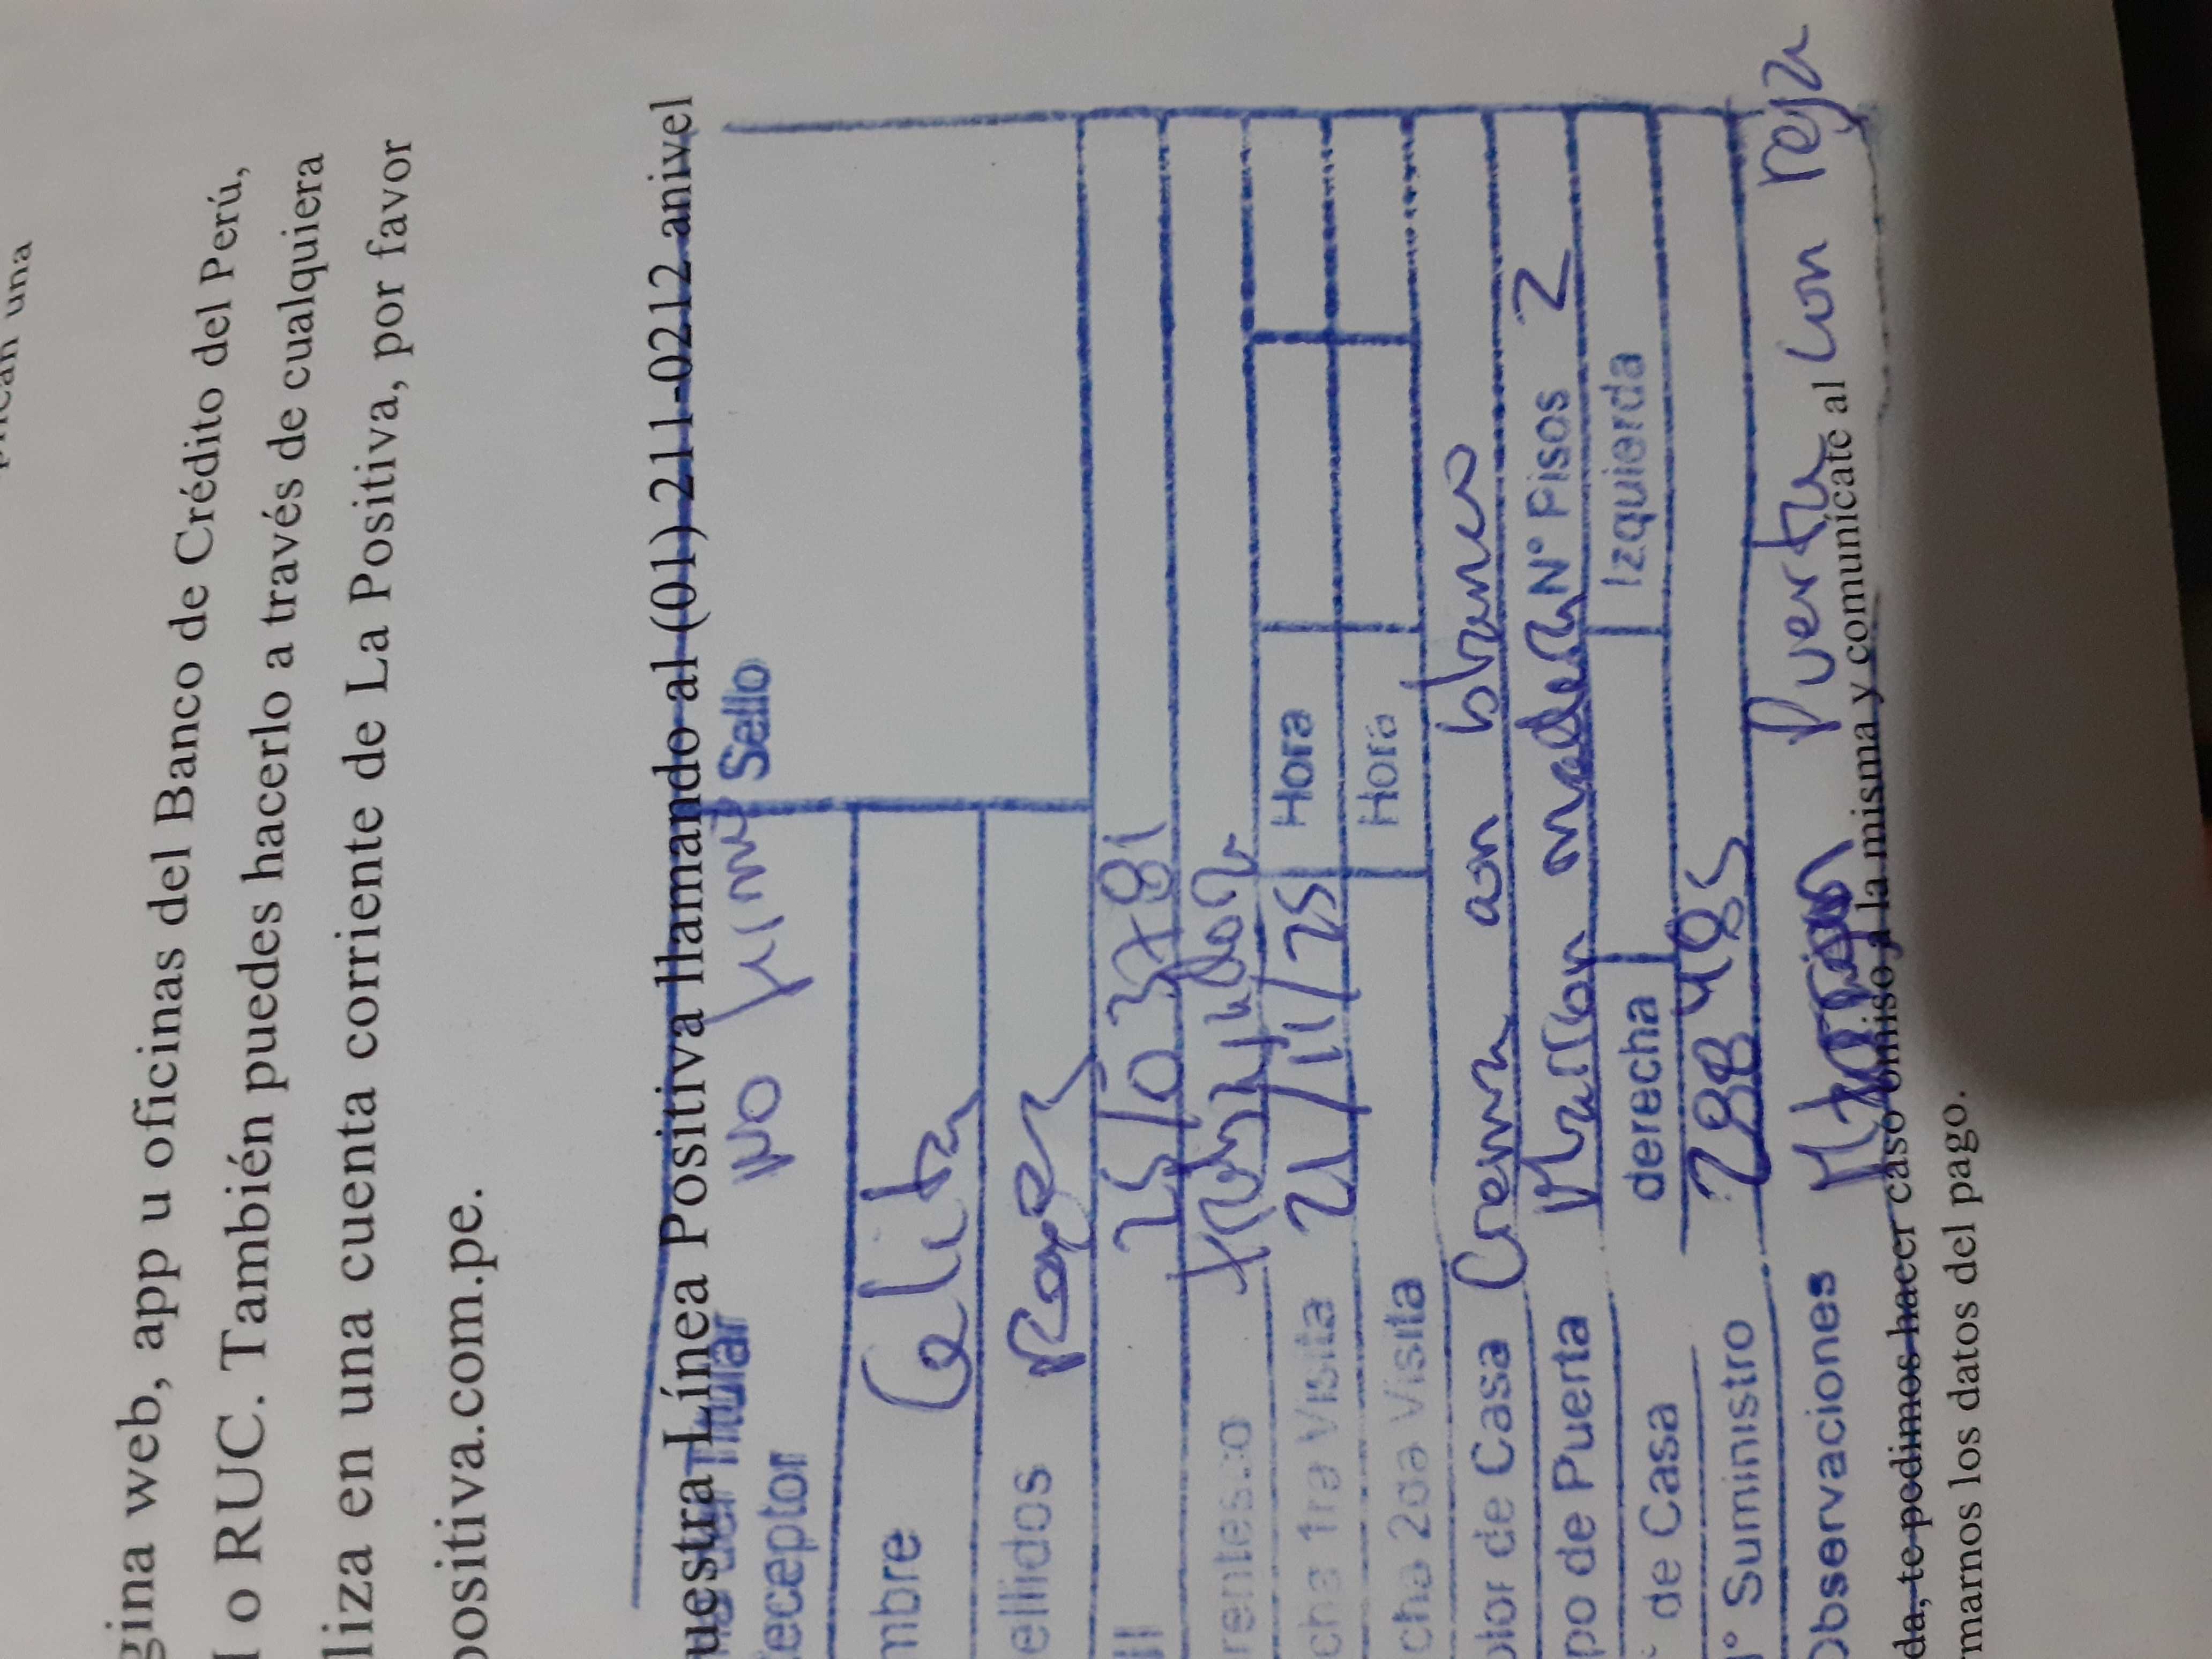 plican una
gina web, app u oficinas del Banco de Crédito del Perú,
I o RUC. También puedes hacerlo a través de cualquiera
liza en una cuenta corriente de La Positiva, por favor
positiva.com.pe.
uestra Línea Positiva llamando al (01) 211-0212 anivel
Titular
Receptor no firmó Sello
mbre Celita
ellidos
25103781
rentesco
cha 1ra Visita 21/11/25 Hora
cha 2da Visita Hora
olor de Casa Crema con blanco
po de Puerta Marron madera N° Pisos 2
° de Casa derecha Izquierda
° Suministro 2884985
Observaciones Puerta con reja
da, te pedimos hacer caso omiso a la misma y comunícate al
rmarnos los datos del pago.